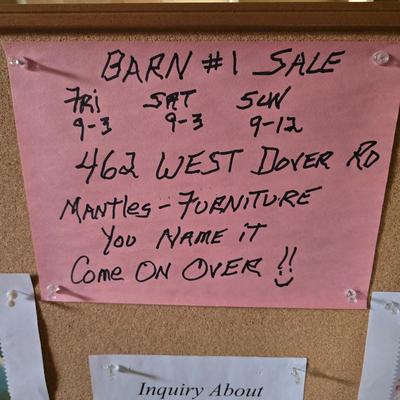 BARN #1 SALE
FRI SAT SUN
9-3 9-3 9-12
462 WEST DOVER RD
MANTLES - FURNITURE
YOU NAME IT
COME ON OVER !!
Inquiry About